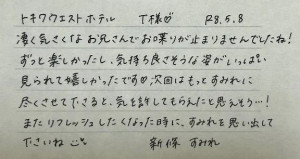 トキワクエストホテル T様♡ R8.5.8
凄く気さくなお兄さんでお喋りが止まりませんでしたね!
ずっと楽しかったし、気持ち良さそうな姿がいっぱい
見られて嬉しかったです♡次回はもっとすみれに
尽くさせて下さると、気を許してもらえたと思えそう…!
またリフレッシュしたくなった時に、すみれを思い出して
下さいね 新條 すみれ